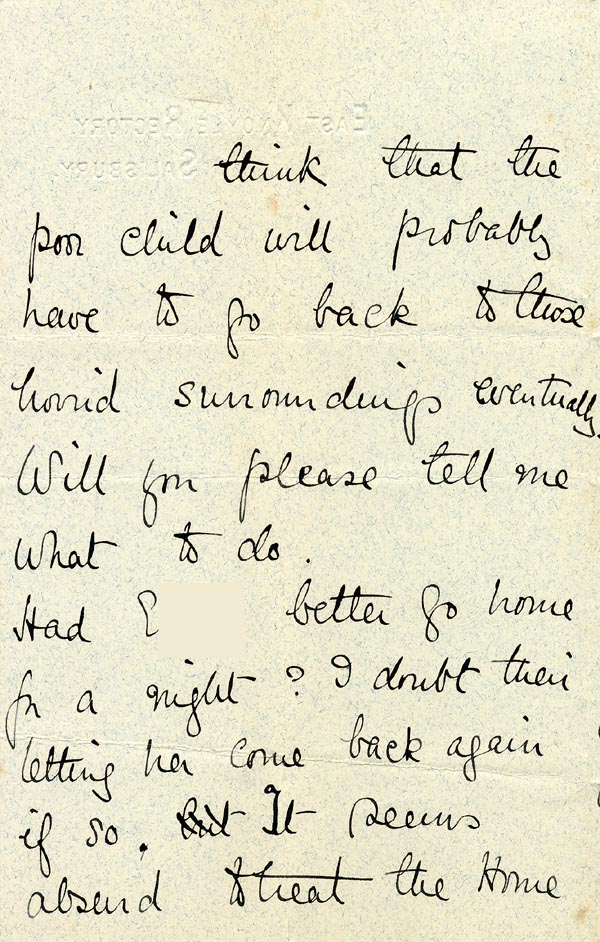 EAST KNOYLE RECTORY
SALISBURY
think that the
poor child will probably
have to go back to those
horrid surroundings eventually.
Will you please tell me
what to do.
Had E better go home
for a night? I doubt their
letting her come back again
if so. But It seems
absurd to treat the Home